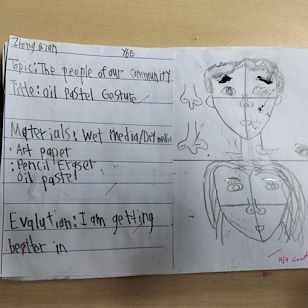 Zhong Qian Y8E
Topic: The people of our community
Title: oil pastel Gesture
Materials: Wet media/Dry media
· Art paper
· Pencil · Eraser
oil pastel
Evalution: I am getting
better in